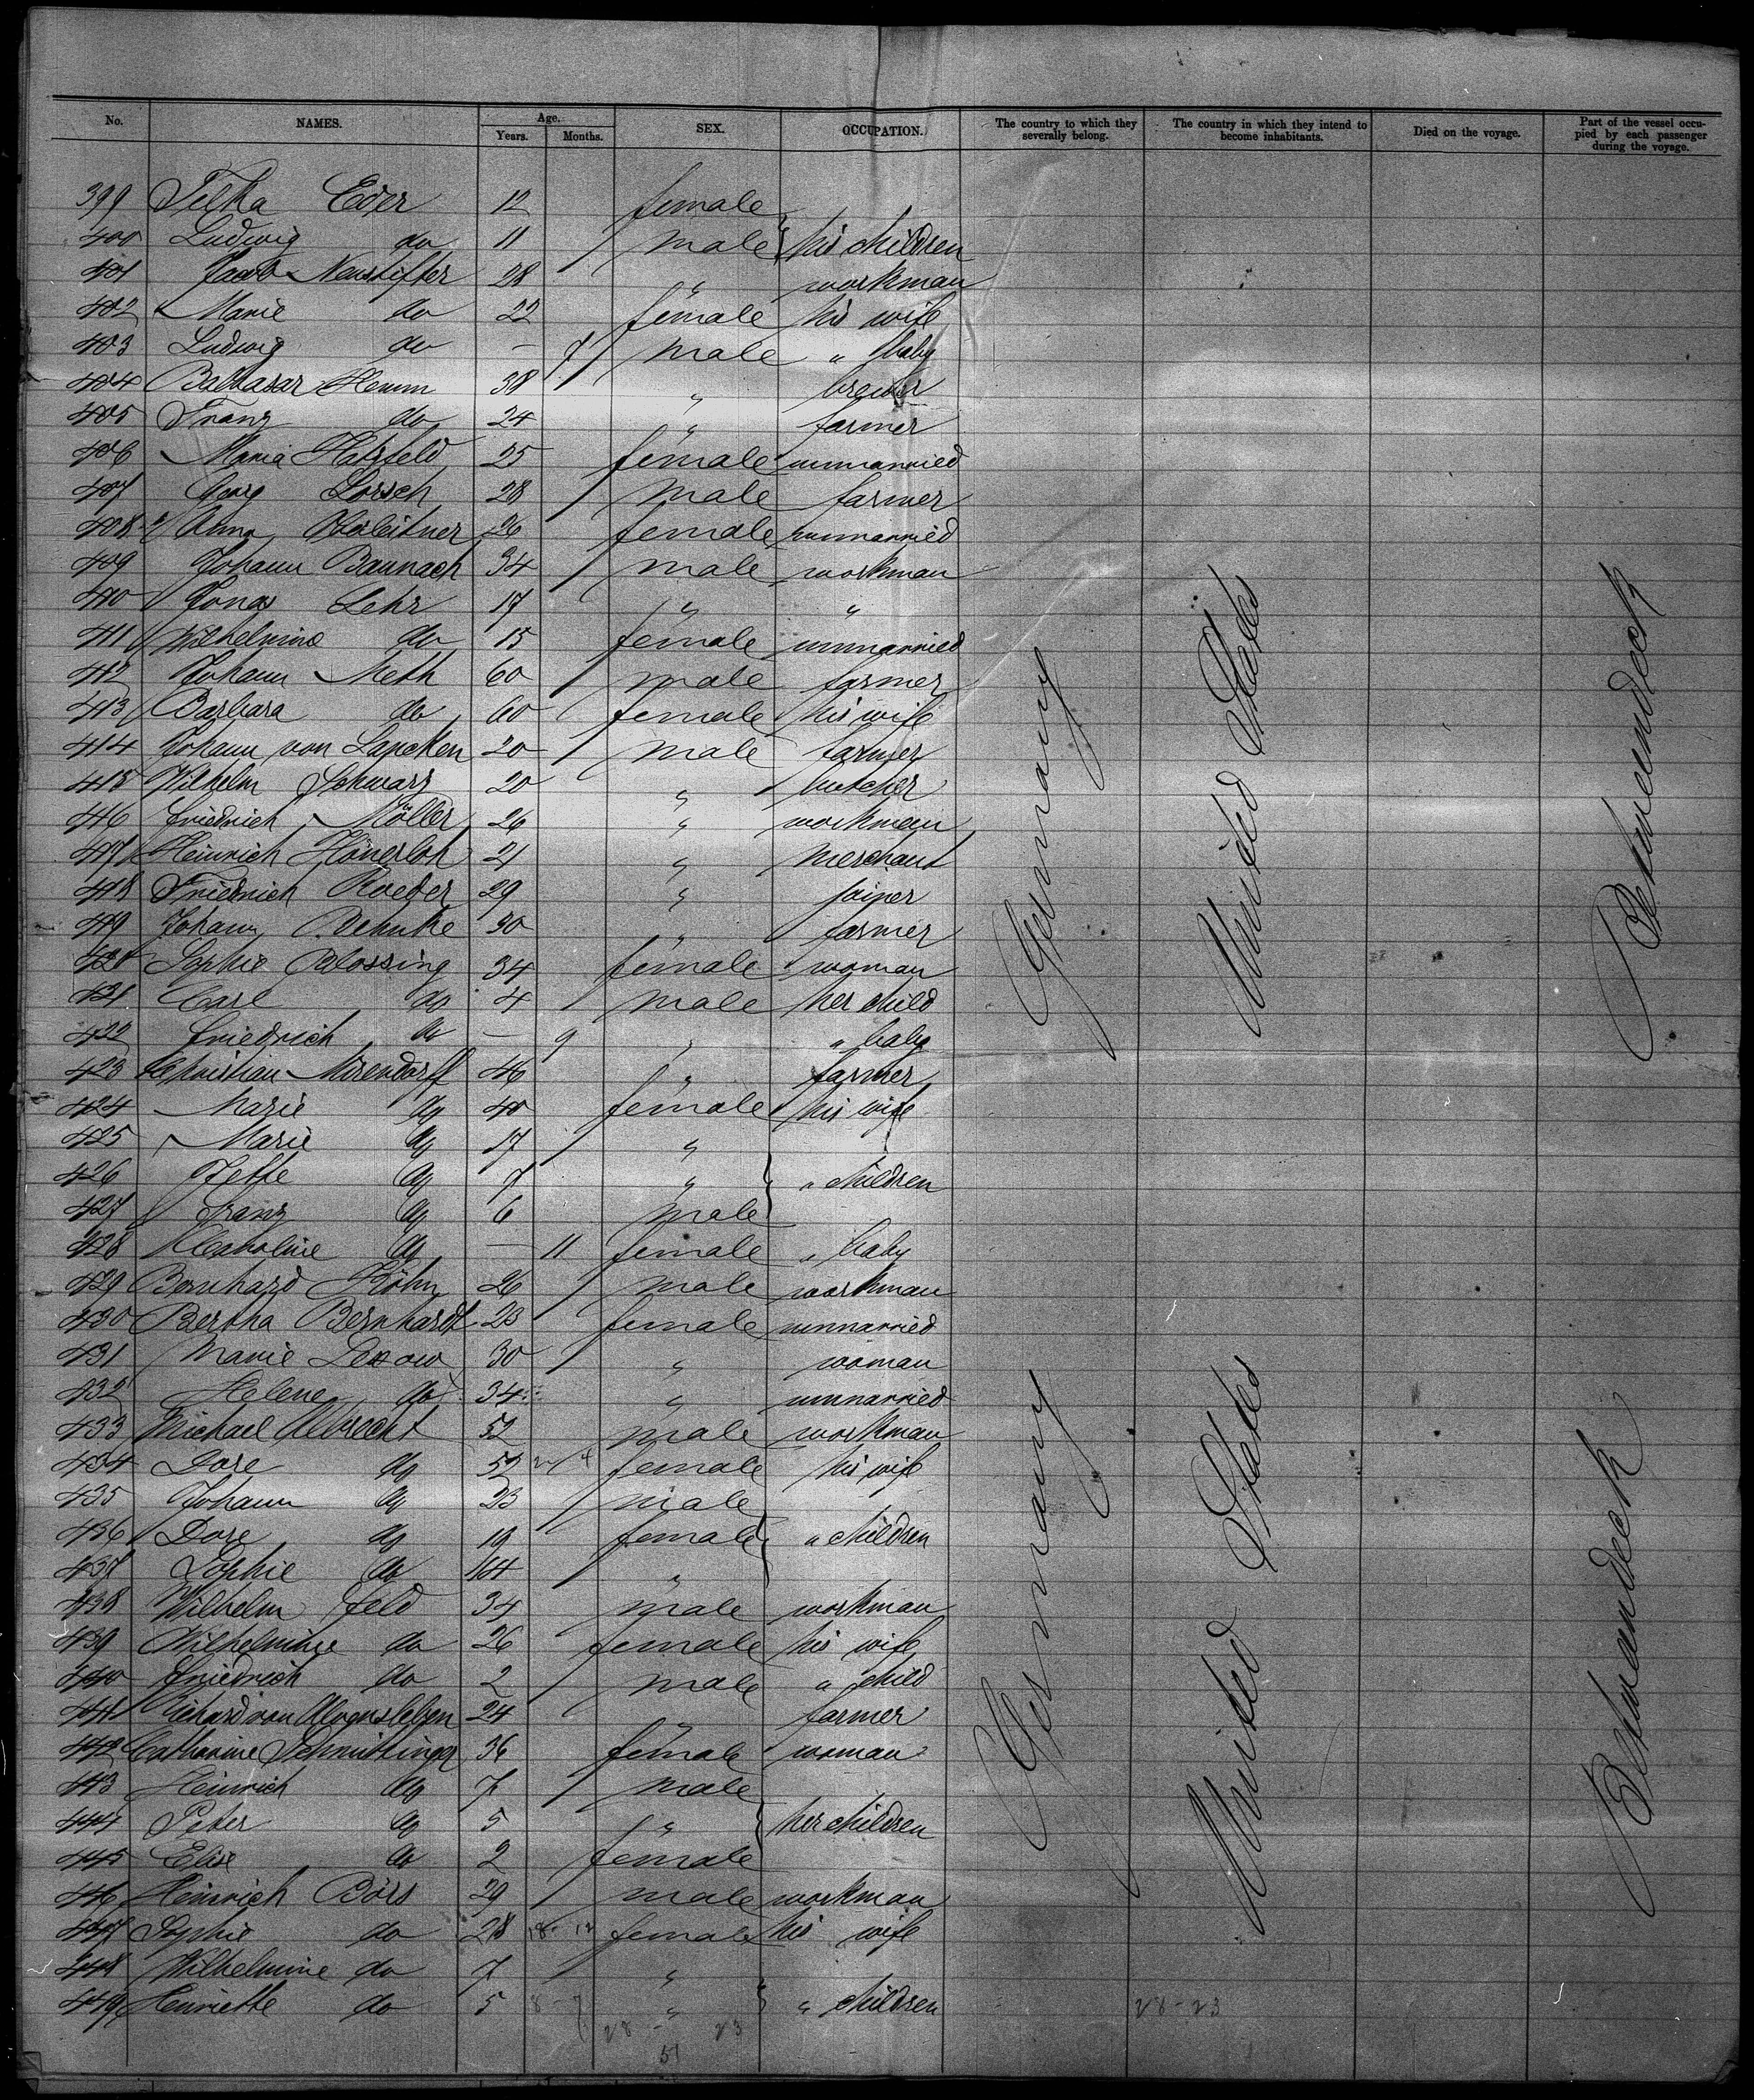 No. NAMES. Age. Years. Months. SEX. OCCUPATION. The country to which they severally belong. The country in which they intend to become inhabitants. Died on the voyage. Part of the vessel occupied by each passenger during the voyage.
399 Eder 12 female
400 Ludwig do 11 male his children
401 Jacob Neustifter 28 " workman
402 Marie do 22 female his wife
403 Ludwig do — 7 male " baby
404 Baltasar Hemm 38 " brewer
405 Franz do 24 " farmer
406 Maria Hatzfeld 25 female unmarried
407 Georg Lorsch 28 male farmer
408 Anna Oberleitner 26 female unmarried
409 Johann Baunach 34 male workman
410 Jonas Lehr 17 " "
411 Wilhelmine do 15 female unmarried
412 Johann Meth 60 male farmer
413 Barbara do 60 female his wife
414 Johann von Lancken 20 male farmer
415 Wilhelm Schwarz 20 " butcher
416 Friedrich Möller 26 " workman
417 Heinrich Hönerloh 21 " merchant
418 Friedrich Roeder 29 " joiner
419 Johann Behnke 30 " farmer
420 Sophie Blossing 34 female woman
421 Carl do 4 male her child
422 Friedrich do — 9 " " baby
423 Christian Mirendorff 46 " farmer
424 Marie do 40 female his wife
425 Marie do 17 "
426 Jette do 7 " " children
427 Franz do 6 male
428 Karoline do — 11 female " baby
429 Bernhard Köhn 26 male workman
430 Bertha Bernhardt 23 female unmarried
431 Marie Lexow 30 " woman
432 Helene do 34 " unmarried
433 Michael Albrecht 51 male workman
434 Dore do 52 female his wife
435 Johann do 23 male
436 Dore do 19 female " children
437 Sophie do 14 "
438 Wilhelm Feld 34 male workman
439 Wilhelmine do 26 female his wife
440 Friedrich do 2 male " child
441 Richard von Alvensleben 24 " farmer
442 Catharine 36 female woman
443 Heinrich do 7 male
444 Peter do 5 " her children
445 Elise do 2 female
446 Heinrich Börs 29 male workman
447 Sophie do 28 female his wife
448 Wilhelmine do 7 "
449 Henriette do 5 " " children
28 - 23
28 - 23
51
Germany
United States
Betweendeck
Germany
United States
Betweendeck